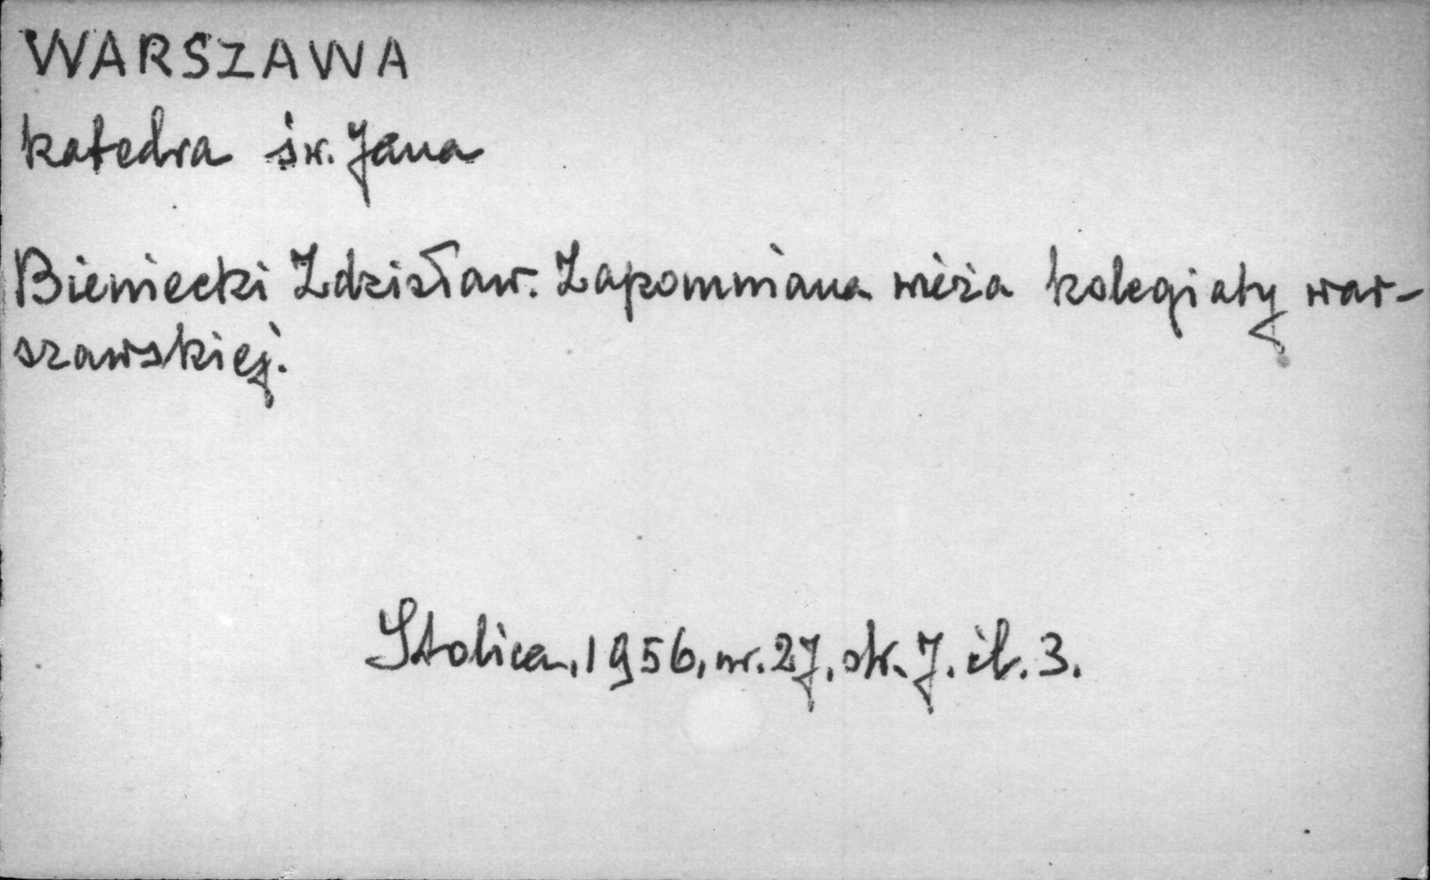 WARSZAWA
katedra św. Jana
Bieniecki Zdzisław. Zapomniana wieża kolegiaty war-
szawskiej.
Stolica, 1956, nr. 27, str. 7. il. 3.